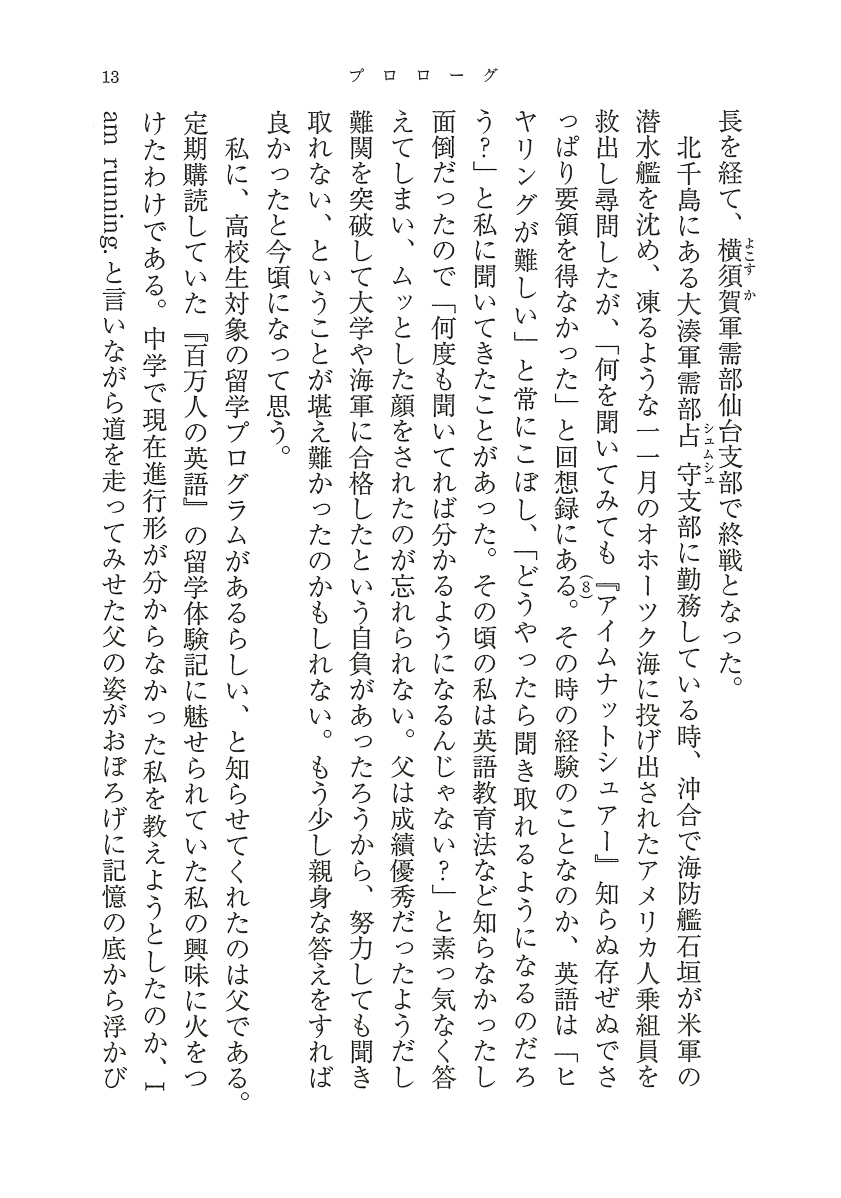 13
プロローグ
長を経て、横須賀軍需部仙台支部で終戦となった。
よこすか
北千島にある大湊軍需部占守支部に勤務している時、沖合で海防艦石垣が米軍の
シュムシュ
潜水艦を沈め、凍るような一一月のオホーツク海に投げ出されたアメリカ人乗組員を
救出し尋問したが、「何を聞いてみても『アイムナットシュアー』知らぬ存ぜぬでさ
っぱり要領を得なかった」と回想録にある。その時の経験のことなのか、英語は「ヒ
(8)
ヤリングが難しい」と常にこぼし、「どうやったら聞き取れるようになるのだろ
う？」と私に聞いてきたことがあった。その頃の私は英語教育法など知らなかったし
面倒だったので「何度も聞いてれば分かるようになるんじゃない？」と素っ気なく答
えてしまい、ムッとした顔をされたのが忘れられない。父は成績優秀だったようだし
難関を突破して大学や海軍に合格したという自負があったろうから、努力しても聞き
取れない、ということが堪え難かったのかもしれない。もう少し親身な答えをすれば
良かったと今頃になって思う。
私に、高校生対象の留学プログラムがあるらしい、と知らせてくれたのは父である。
定期購読していた『百万人の英語』の留学体験記に魅せられていた私の興味に火をつ
けたわけである。中学で現在進行形が分からなかった私を教えようとしたのか、I
am running. と言いながら道を走ってみせた父の姿がおぼろげに記憶の底から浮かび